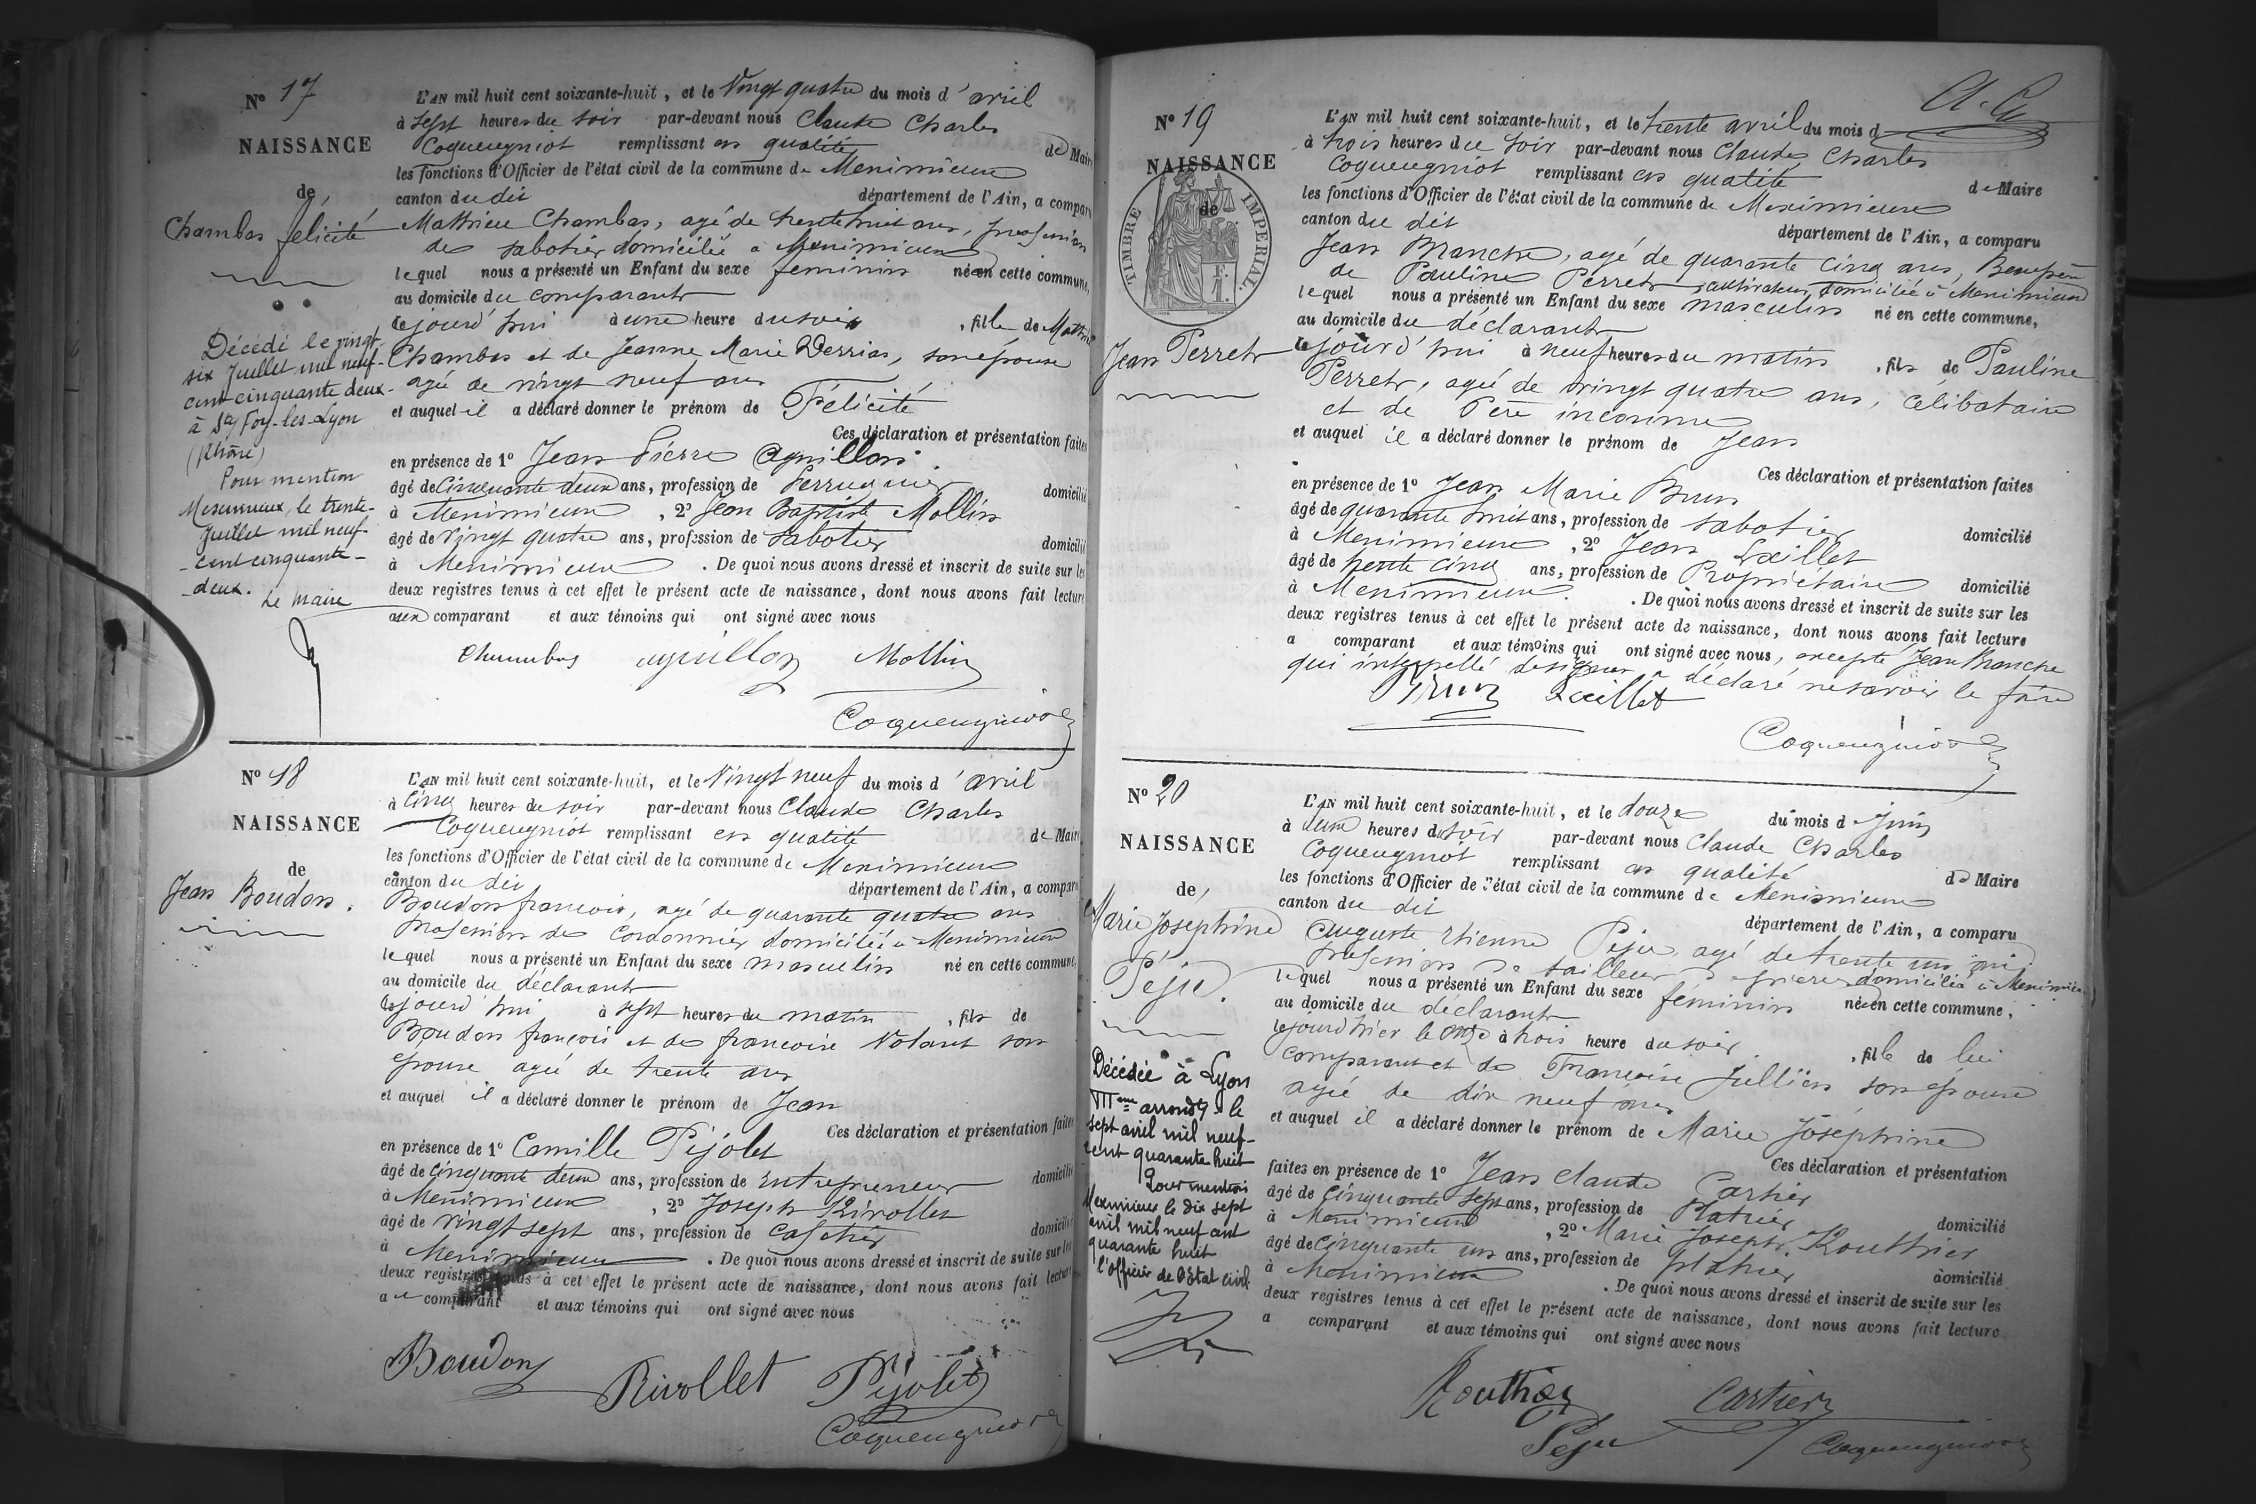 N° 17
NAISSANCE
de
Chambas félicité
L'AN mil huit cent soixante-huit, et le Vingt quatre du mois d'avril
à sept heures du soir par-devant nous Claude Charles
Coqueugniot remplissant en qualité de Maire
les fonctions d'Officier de l'état civil de la commune de Meximieux
canton du dit département de l'Ain, a comparu
Mathieu Chambas, agé de trente huit ans, profession
de sabotier domicilié à Meximieux
lequel nous a présenté un Enfant du sexe féminin né en cette commune,
au domicile du comparant
cejourd'hui à une heure du soir, fille de Mathieu
Chambas et de Jeanne Marie Derrias, son épouse
agée de vingt neuf ans
et auquel il a déclaré donner le prénom de Félicité
Ces déclaration et présentation faites
en présence de 1° Jean Pierre Aguillon
âgé de Cinquante deux ans, profession de Perruquier domicilié
à Meximieux, 2° Jean Baptiste Mollin
âgé de Vingt quatre ans, profession de sabotier domicilié
à Meximieux. De quoi nous avons dressé et inscrit de suite sur les
deux registres tenus à cet effet le présent acte de naissance, dont nous avons fait lecture
aux comparant et aux témoins qui ont signé avec nous
Chambas aguillon Mollin
Coqueugniot
Décédé le vingt-
six Juillet mil neuf-
cent cinquante deux-
à Ste Foy-les-Lyon
(Rhône)
Pour mention
Meximieux, le trente-
Juillet mil neuf-
-cent cinquante-
-deux.
Le Maire
N° 18
NAISSANCE
de
Jean Boudon.
L'AN mil huit cent soixante-huit, et le Vingt neuf du mois d'avril
à Cinq heures du soir par-devant nous Claude Charles
Coqueugniot remplissant en qualité de Maire
les fonctions d'Officier de l'état civil de la commune de Meximieux
canton du dit département de l'Ain, a comparu
Boudon françois, agé de quarante quatre ans
profession de Cordonnier domicilié à Meximieux
lequel nous a présenté un Enfant du sexe masculin né en cette commune,
au domicile du déclarant
cejourd'hui à sept heures du matin, fils de
Boudon françois et de françoise Volant son
épouse agée de trente ans
et auquel il a déclaré donner le prénom de Jean
Ces déclaration et présentation faites
en présence de 1° Camille Péjolet
âgé de Cinquante deux ans, profession de Entrepreneur domicilié
à Meximieux, 2° Joseph Rivollet
âgé de Vingt sept ans, profession de Cafetier domicilié
à Meximieux. De quoi nous avons dressé et inscrit de suite sur les
deux registres tenus à cet effet le présent acte de naissance, dont nous avons fait lecture
au comparant et aux témoins qui ont signé avec nous
Boudon Rivollet Péjolet
Coqueugniot
N° 19
NAISSANCE
de
TIMBRE IMPERIAL.
Jean Perret
L'AN mil huit cent soixante-huit, et le trente avril du mois d
à trois heures du soir par-devant nous Claude Charles
Coqueugniot remplissant en qualité de Maire
les fonctions d'Officier de l'état civil de la commune de Meximieux
canton du dit département de l'Ain, a comparu
Jean Branche, agé de quarante cinq ans, Beaupère
de Pauline Perret cultivateur domicilié à Meximieux
lequel nous a présenté un Enfant du sexe masculin né en cette commune,
au domicile du déclarant
cejourd'hui à neuf heures du matin, fils de Pauline
Perret, agée de vingt quatre ans, célibataire
et de Père inconnu
et auquel il a déclaré donner le prénom de Jean
Ces déclaration et présentation faites
en présence de 1° Jean Marie Brun
âgé de quarante huit ans, profession de sabotier domicilié
à Meximieux, 2° Jean Dxillet
âgé de trente cinq ans, profession de Propriétaire domicilié
à Meximieux. De quoi nous avons dressé et inscrit de suite sur les
deux registres tenus à cet effet le présent acte de naissance, dont nous avons fait lecture
a comparant et aux témoins qui ont signé avec nous, excepté Jean Branche
qui interpellé de signer a déclaré ne savoir le faire
Brun
Coqueugniot
N° 20
NAISSANCE
de
Marie Joséphine
Péju.
L'AN mil huit cent soixante-huit, et le douze du mois de Juin
à une heures du soir par-devant nous Claude Charles
Coqueugniot remplissant en qualité de Maire
les fonctions d'Officier de l'état civil de la commune de Meximieux
canton du dit département de l'Ain, a comparu
Auguste Etienne Péju, agé de trente un ans
profession de tailleur de pierre domicilié à Meximieux
lequel nous a présenté un Enfant du sexe féminin née en cette commune,
au domicile du déclarant
lejourd'hier le onze à trois heure du soir, fille de lui
comparant et de Françoise Jullien son épouse
agée de dix neuf ans
et auquel il a déclaré donner le prénom de Marie Joséphine
Ces déclaration et présentation
faites en présence de 1° Jean Claude Cartier
âgé de Cinquante sept ans, profession de Platrier domicilié
à Meximieux, 2° Marie Joseph Routhier
âgé de Cinquante un ans, profession de platrier domicilié
à Meximieux. De quoi nous avons dressé et inscrit de suite sur les
deux registres tenus à cet effet le présent acte de naissance, dont nous avons fait lecture
a comparant et aux témoins qui ont signé avec nous
Routhier Cartier
Péju Coqueugniot
Décédée à Lyon
IIIeme arrondt le
sept avril mil neuf-
cent quarante huit
Pour mention
Meximieux le dix sept
avril mil neuf cent
quarante huit
l'officier de l'Etat civil